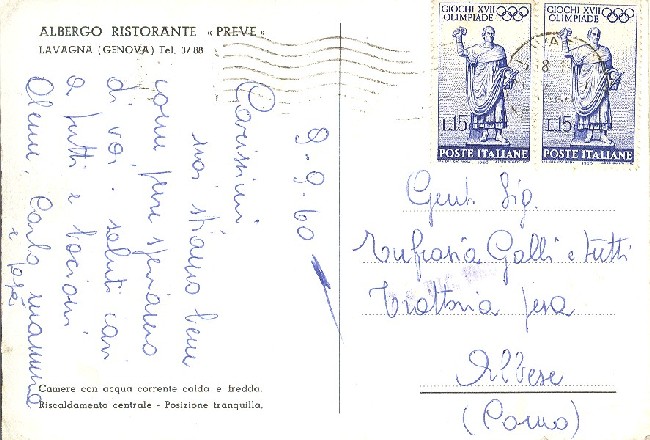 ALBERGO RISTORANTE « PREVE »
LAVAGNA (GENOVA) Tel. 37 88
9-9-60
Carissimi
noi stiamo bene
come pure speriamo
di voi. saluti cari
a tutti e bacioni
Carlo mamma
e papà
Camere con acqua corrente calda e fredda.
Riscaldamento centrale - Posizione tranquilla.
GIOCHI XVII
OLIMPIADE
L.15
POSTE ITALIANE
GIOCHI XVII
OLIMPIADE
L.15
POSTE ITALIANE
Gent. Sig.
Eufrasia Galli e tutti
Trattoria
Albese
(Como)